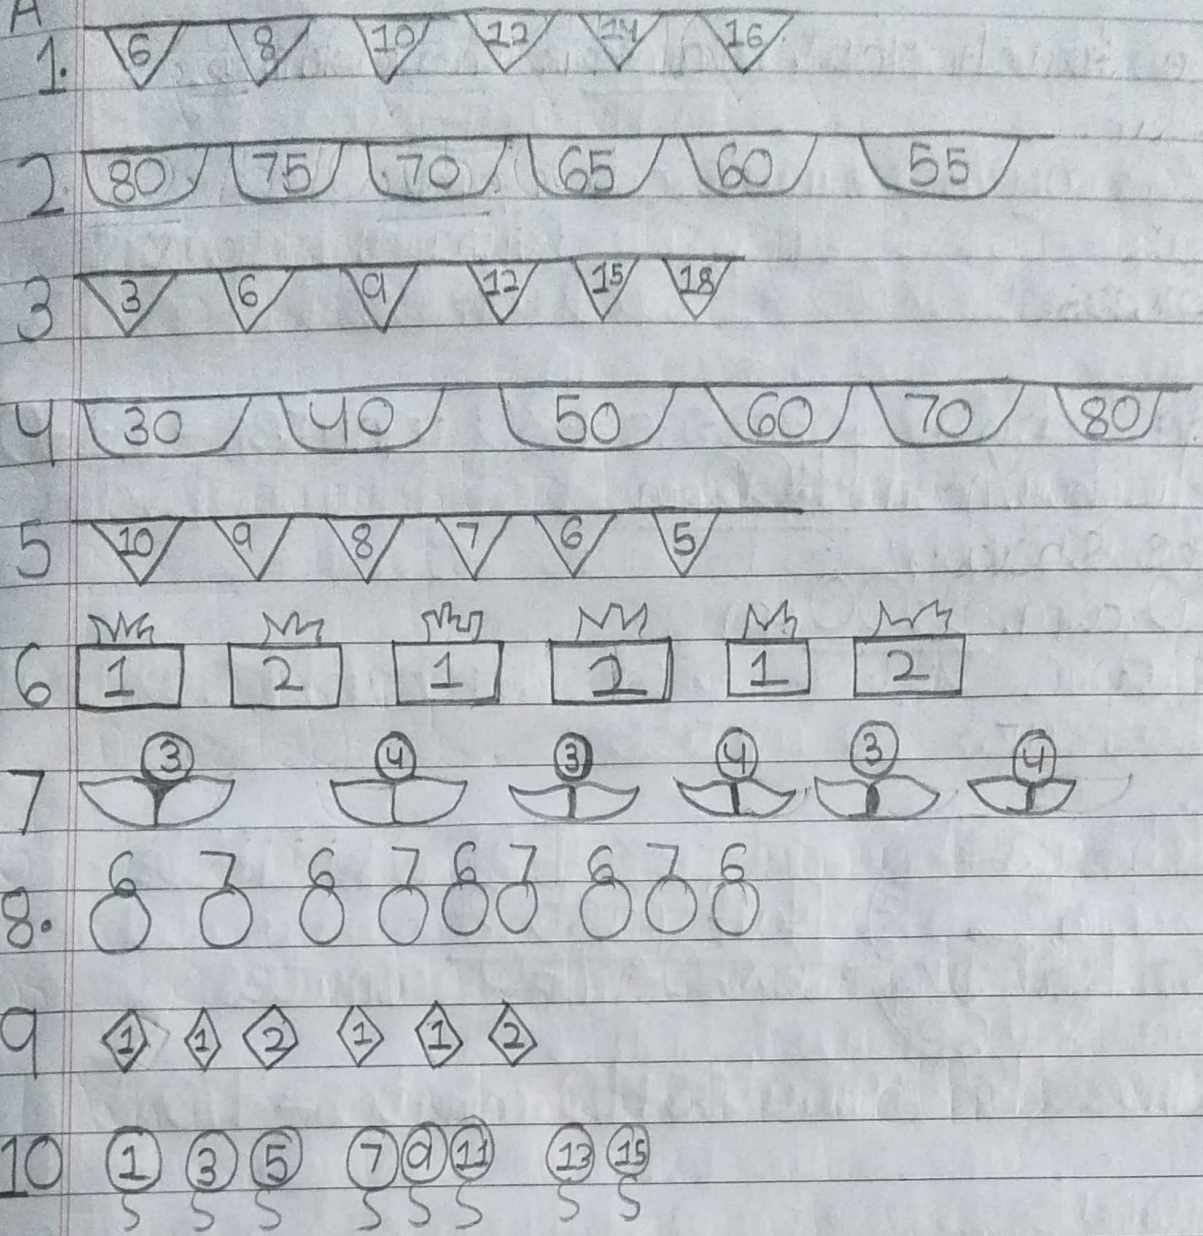 A
1. 6 8 10 12 14 16
2. 80 75 70 65 60 55
3 3 6 9 12 15 18
4 30 40 50 60 70 80
5 10 9 8 7 6 5
6 1 2 1 2 1 2
7 3 4 3 4 3 4
8. 6 7 6 7 6 7 6 7 6
9 1 1 2 1 1 2
10 1 3 5 7 9 11 13 15